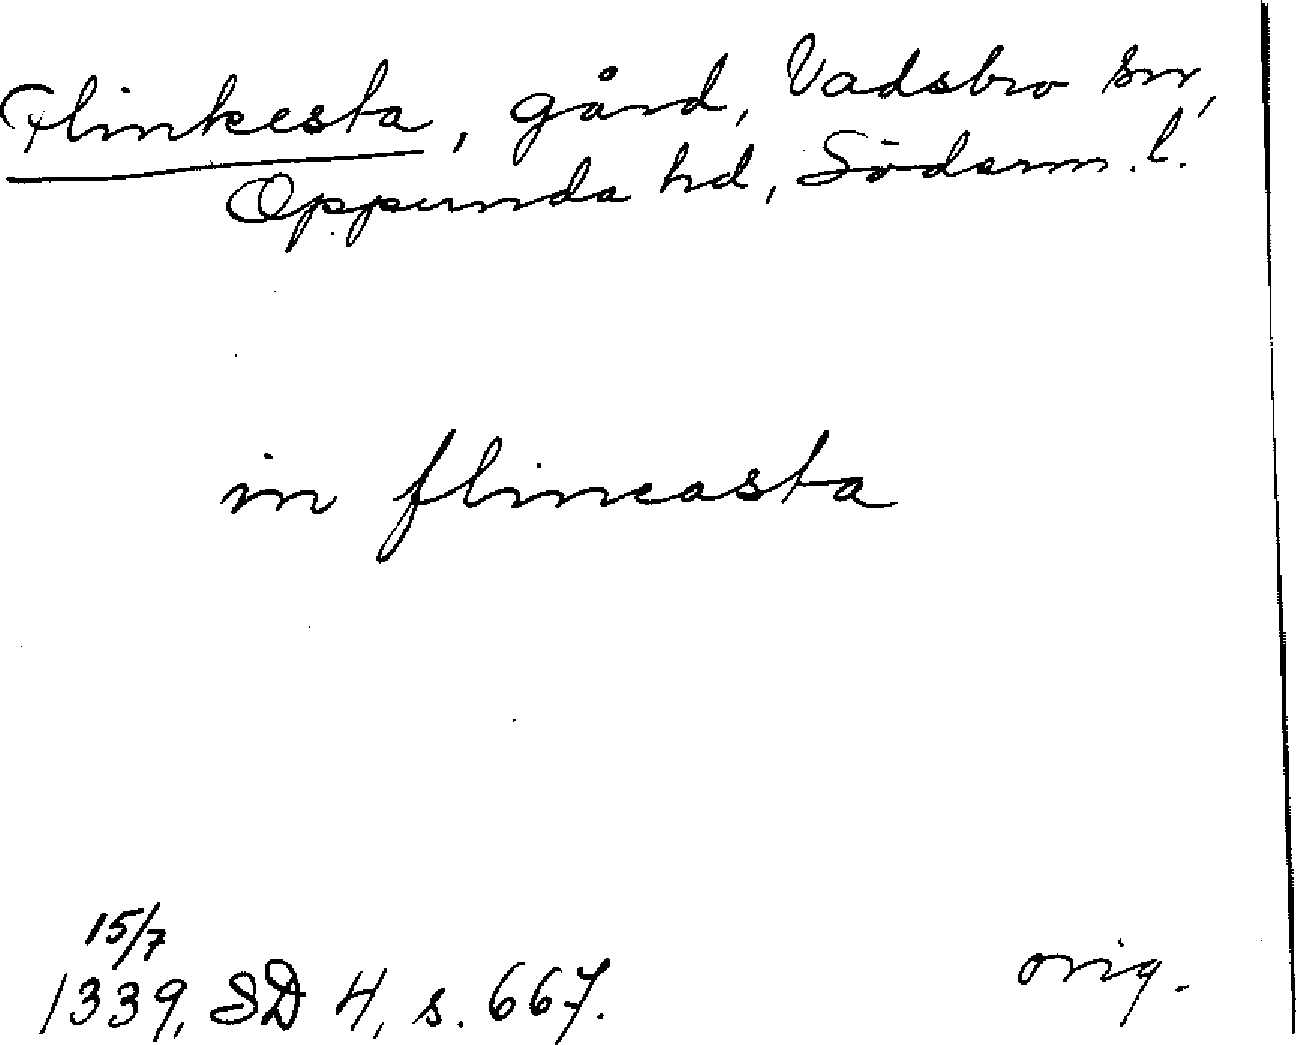 Flinkesta, gård, Vadsbro sn,
Oppunda hd, Söderm. l.
in flincasta
15/7
1339, SD 4, s. 667. orig.